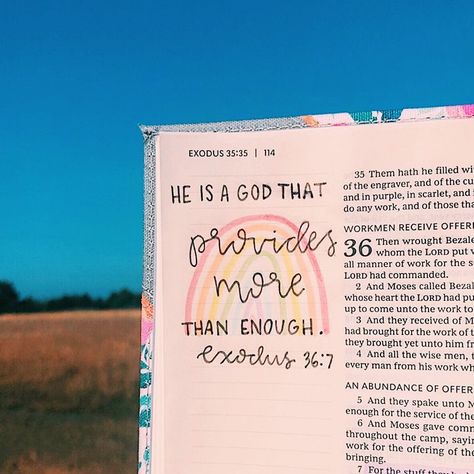 EXODUS 35:35 | 114
HE IS A GOD THAT
provides
more
THAN ENOUGH.
exodus 36:7
35 Them hath he filled wi
of the engraver, and of the cu
and in purple, in scarlet, and
do any work, and of those tha
WORKMEN RECEIVE OFFERI
36 Then wrought Bezale
whom the LORD put w
all manner of work for the s
LORD had commanded.
2 And Moses called Bezal
whose heart the LORD had pu
up to come unto the work to
3 And they received of M
had brought for the work of t
they brought yet unto him fr
4 And all the wise men, t
every man from his work wh
AN ABUNDANCE OF OFFER
5 And they spake unto M
enough for the service of the
6 And Moses gave comm
throughout the camp, sayin
work for the offering of th
bringing.
7 For the stuff they h